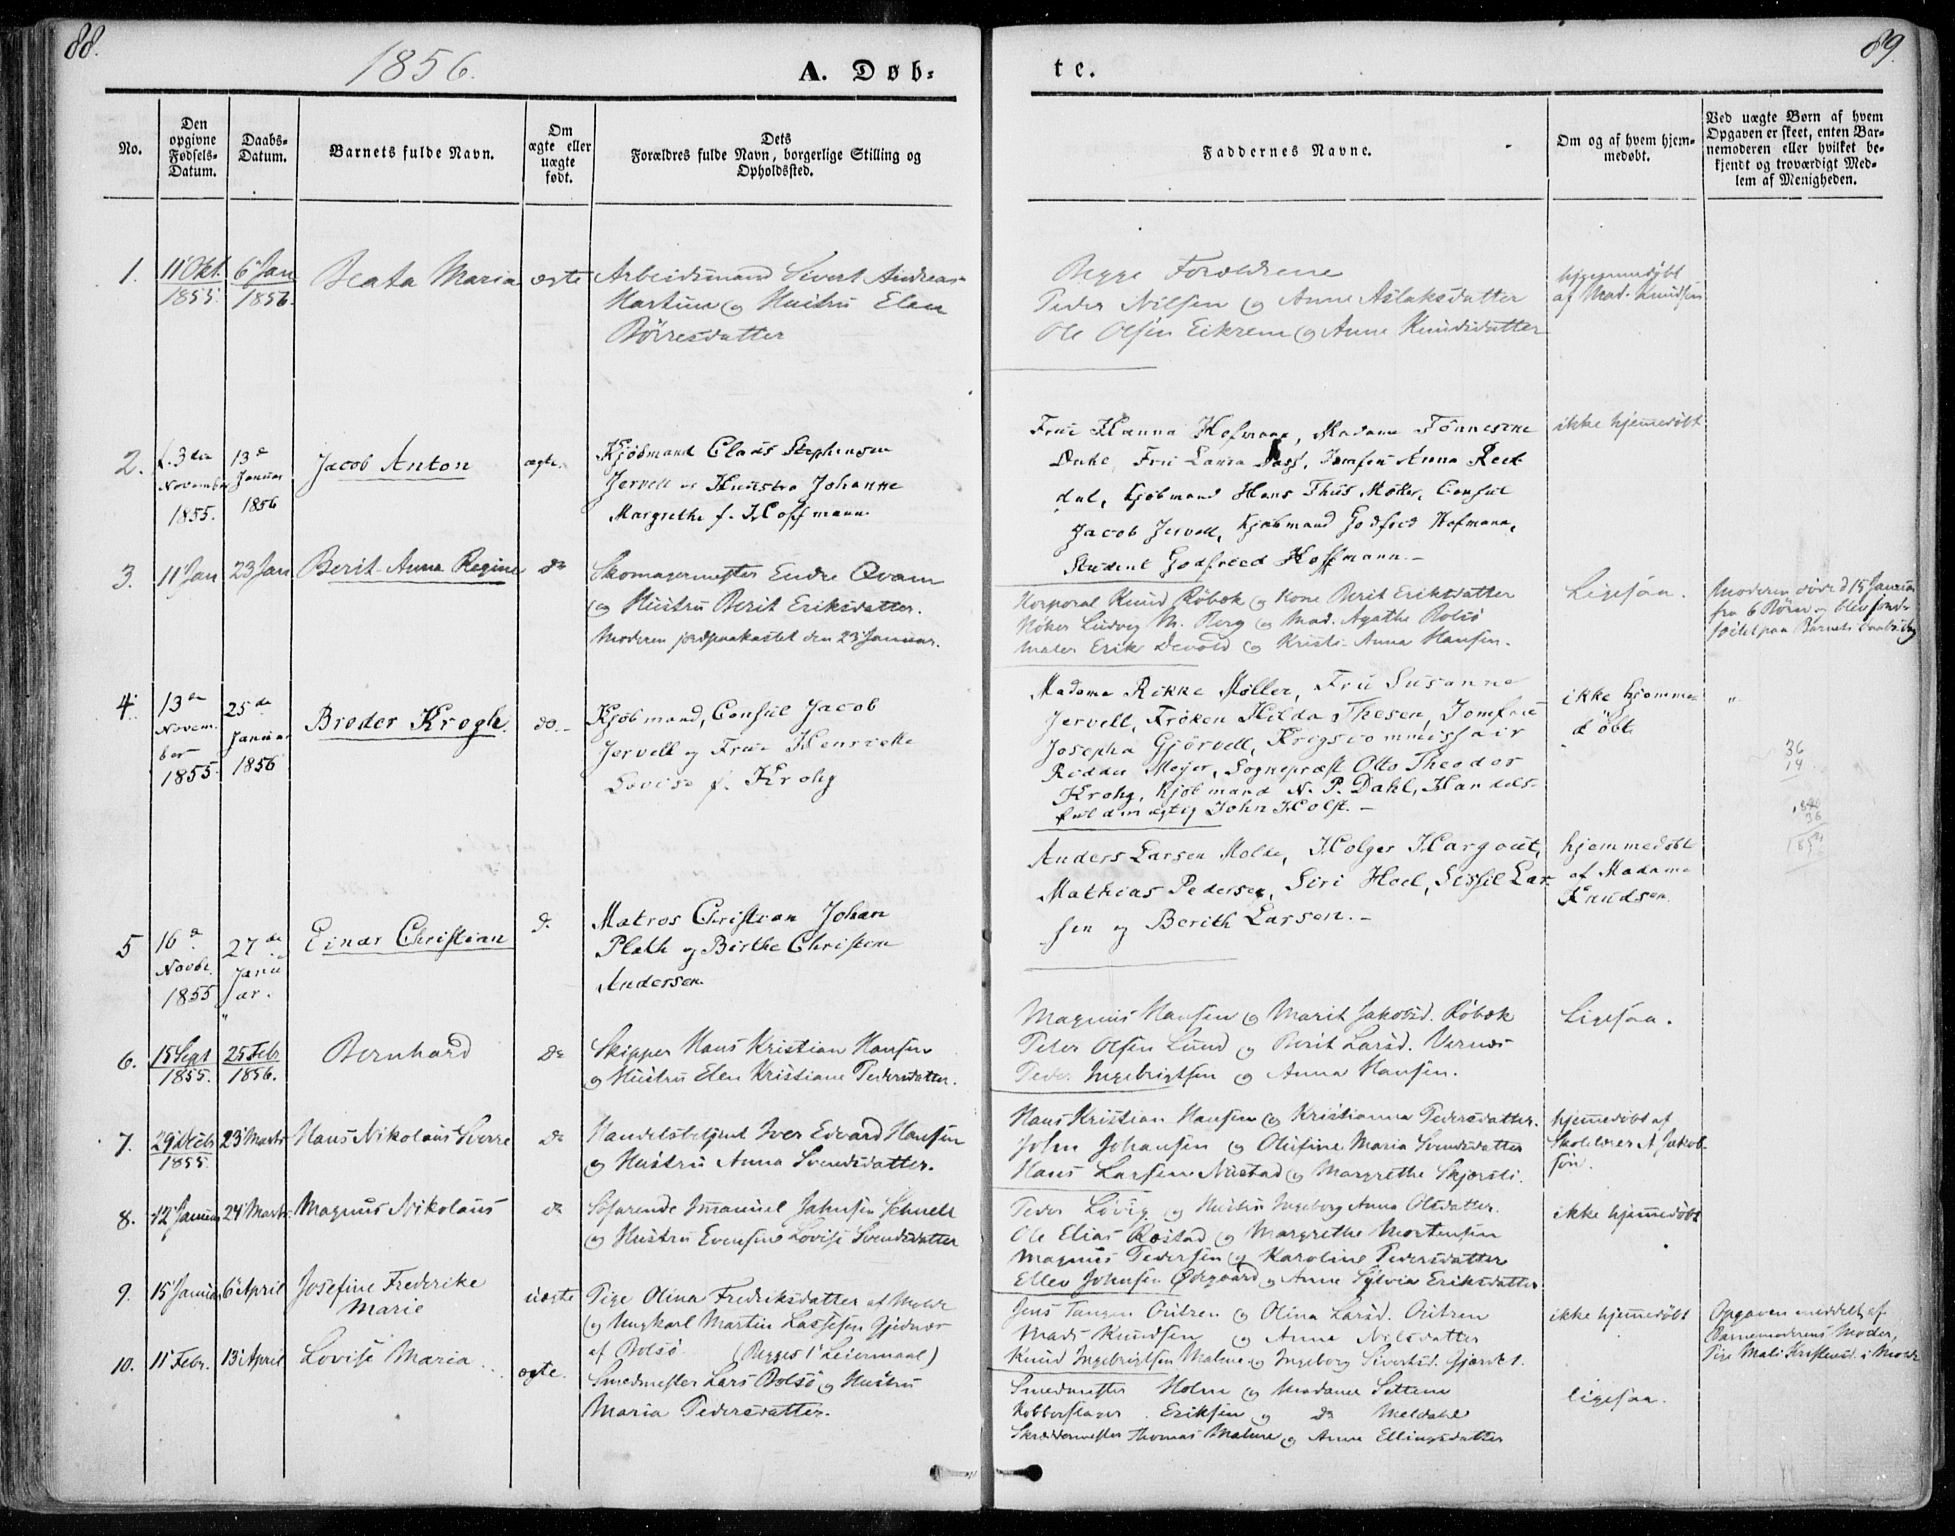 88.
1856.
A. Døb-
No.
Den opgivne Fødsels-Datum.
Daabs-Datum.
Barnets fulde Navn.
Om ægte eller uægte født.
Dets Forældres fulde Navn, borgerlige Stilling og Opholdssted.
1. 11' Okt. 1855. 6' Jan 1856. Beata Maria ægte Arbeidsmand Sivert Andreas
Martin og Hustru Elen
Børresdatter
2. f. 3die November 1855. 13de Januar 1856 Jacob Anton ægte. Kjøbmand Claus Stephensen
Jervell og Huustro Johanne
Margrethe f. Hoffmann
3. 11' Jan 23' Jan Berit Anna Regine do Skomagermester Endre Qvam
og Hustru Berit Eriksdatter.
Moderen jordpaakastet den 23' Januar.
4. 13de November 1855. 25de Januar 1856 Broder Krogh. do.- Kjøbmand, Consul Jacob
Jervell og Frue Henriette
Lovise f. Krohg
5 16de Novbr. 1855 27de Januar. Einar Christian do Matros Christian Johan
Plath og Birthe Christine
Andersen.
6. 15 Sept 1855. 25 Feb 1856. Bernhard do Skipper Hans Kristian Hansen
og Hustru Elen Kristiane Pedersdatter.
7. 29' Decb 1855. 23' Marts Hans Nikolaus Sverre do Handelsbetjent Iver Edvard Hansen
og Hustru Anna Svendsdatter.
8. 12' Januar 24' Marts. Magnus Nikolaus do Søfarende Imanuel Jahnsen Schnell
og Hustru Evensine Lovise Svendsdatter
9. 15' Januar 6' April Josefine Frederike
Marie uægte Pige Olina Fredriksdatter af Molde
og Ungkarl Martin Lassesen Gjednæs
af Bolsø. (Begges 1' Leiermaal)
10. 11' Febr. 13' April Lovise Maria ægte. Smedmester Lars Bolsø og Hustru
Maria Pedersdatter.
89.
te.
Faddernes Navne.
Om og af hvem hjem-medøbt.
Ved uægte Børn af hvem
Opgaven er skeet, enten Bar-
nemoderen eller hvilket be-
kjendt og troværdigt Med-
lem af Menigheden.
Begge Forældrene
Peder Nilsen og Anne Aslaksdatter
Ole Olsen Eikrem og Anne Knudsdatter
hjemmedøbt
af Mad. Knudsen
Frue Hanna Hofmann, Madame Tønnesine
Dahl, Fru Laura Dass, Jomfru Anna Reet
dal, Kjøbmand Hans Thiis Møller, Consul
Jacob Jervell, Kjøbmand Godfred Hofmann,
Student Godfred Hoffmann.-
ikke hjemedøbt
Korporal Knud Røbek og Kone Berit Eriksdatter
Høker Ludvig M. Berg og Mad. Agathe Bolsø
Maler Erik Devold og Kristi Anna Hansen.
Ligesaa.
Moderen døde d 15 Januar
fra 6 Børn og blev jord-
fæstet paa Barnets Daabsdag
Madame Rikke Møller, Fru Susanne
Jervell, Frøken Hilda Thesen, Jomfrue
Josepha Gjørvell, Krigscommissair
Ridder Mejer, Sognepræst Otto Theodor
Krohg, Kjøbmand N. P. Dahl, Handels-
fuldmægtig John Holst.-
ikke hjemme
døbt
"
36
14
Anders Larsen Molde, Holger Hargout,
Mathias Pedersen, Siri Hoel, Sissil Lar-
sen og Berith Larsen.-
hjemmedøbt
af Madame
Knudsen
Magnus Hansen og Marit Jakobsd. Røbek
Peter Olsen Lund og Berit Larsd. Vernes
Peder Ingebrigtsen og Anna Hansen.
Ligesaa.
Hans Kristian Hansen og Kristianna Pedersdatter.
John Johansen og Olufine Maria Svendsdatter
Hans Larsen Nustad og Margrethe Skjorsli.
hjemedøbt af
Skolelærer A Jakob-
søn.
Peder Løvig og Hustru Ingeborg Anna Olsdatter.
Ole Elias Røstad og Margrethe Mortensen
Magnus Pedersen og Karoline Pedersdatter
Ellev Johnsen Ørgaard og Anne Sylvia Eriksdatter.
ikke hjemmedøbt
Jens Tangen Oritzen og Olina Larsd. Oritzen
Mads Knudsen og Anne Nilsdatter
Knud Ingebrigtsen Malme og Ingeborg Sivertsd.
ikke hjemedøbt
Opgaven meddelt af
Barnemoderens Moder,
Pige Mali Kristensd. i Molde
Smedmester Holm og Madame Settem
Kobberslager Eriksen og do Meldahl
Skræddermester Thomas Malme og Anne Ellingsdatter
ligesaa.